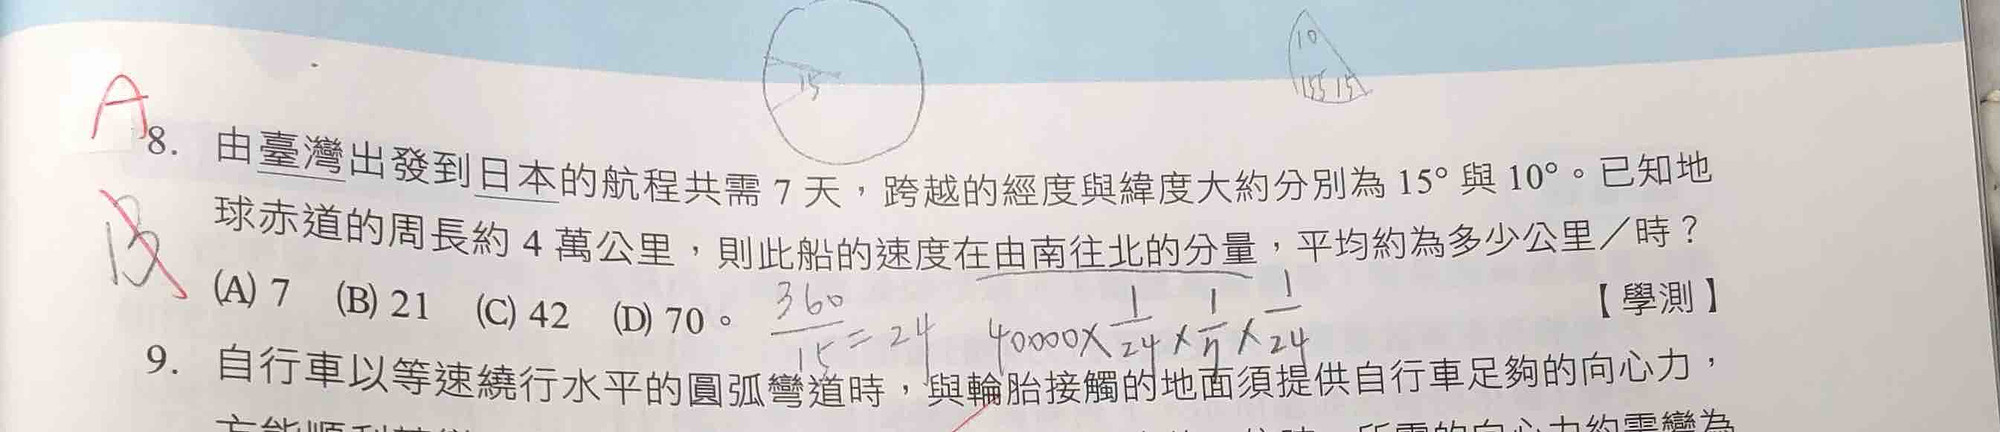 15
10
155 15
A
8. 由臺灣出發到日本的航程共需 7 天，跨越的經度與緯度大約分別為 15° 與 10°。已知地
B
球赤道的周長約 4 萬公里，則此船的速度在由南往北的分量，平均約為多少公里／時？
(A) 7 (B) 21 (C) 42 (D) 70。
【學測】
360/15 = 24 40000 × 1/24 × 1/7 × 1/24
9. 自行車以等速繞行水平的圓弧彎道時，與輪胎接觸的地面須提供自行車足夠的向心力，
所需的向心力約需變為